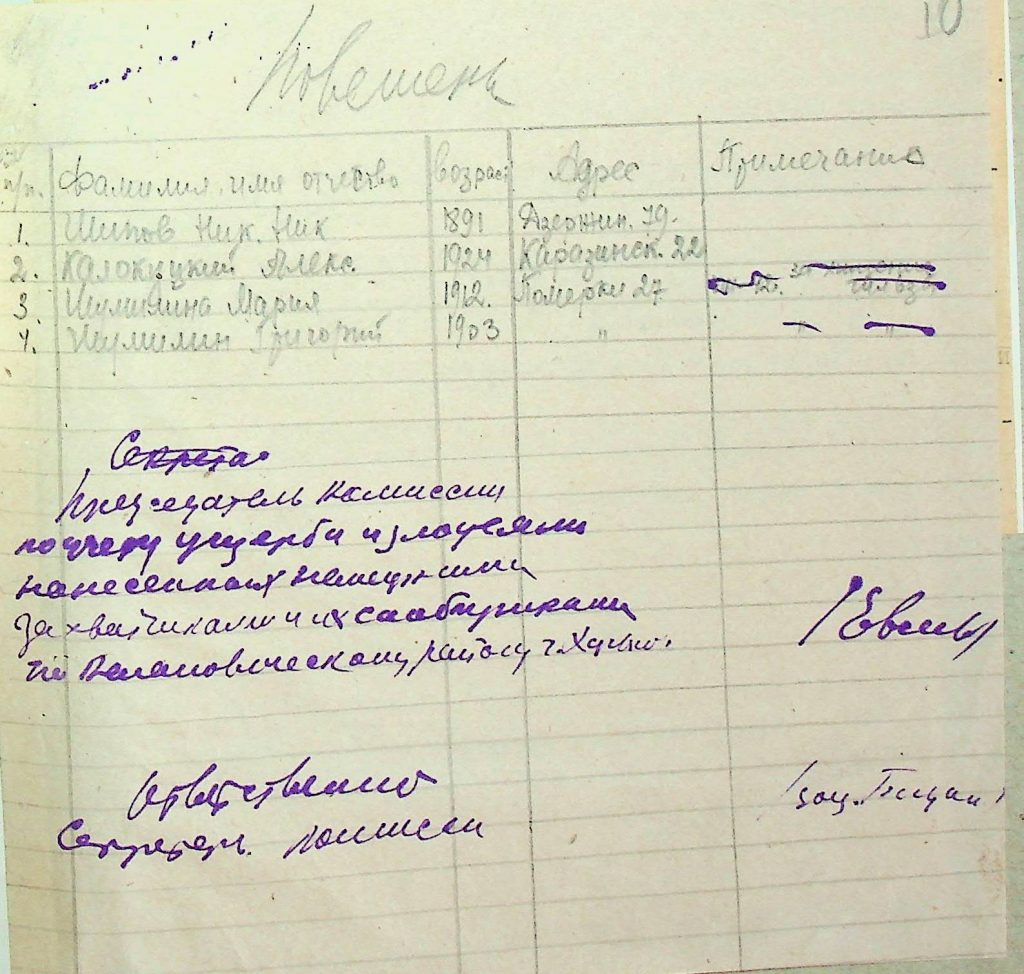 10
Повешены
п/п. Фамилия, имя отчество возраст Адрес Примечание
1. Шипов Ник. Ник 1891 Дзержин. 79.
2. Калокуцкий Алекс. 1924 Каразинск. 22
3. Шумилина Мария 1912. Померки 27
4. Шумилин Григорий 1903 " " "
Секрета
Председатель Комиссии
по учету ущерба и злодеяни
нанесенных немецкими
захватчиками и их сообщниками
по Кагановическому району г. Харьк.
Ответственный
Секретарь. Комиссии